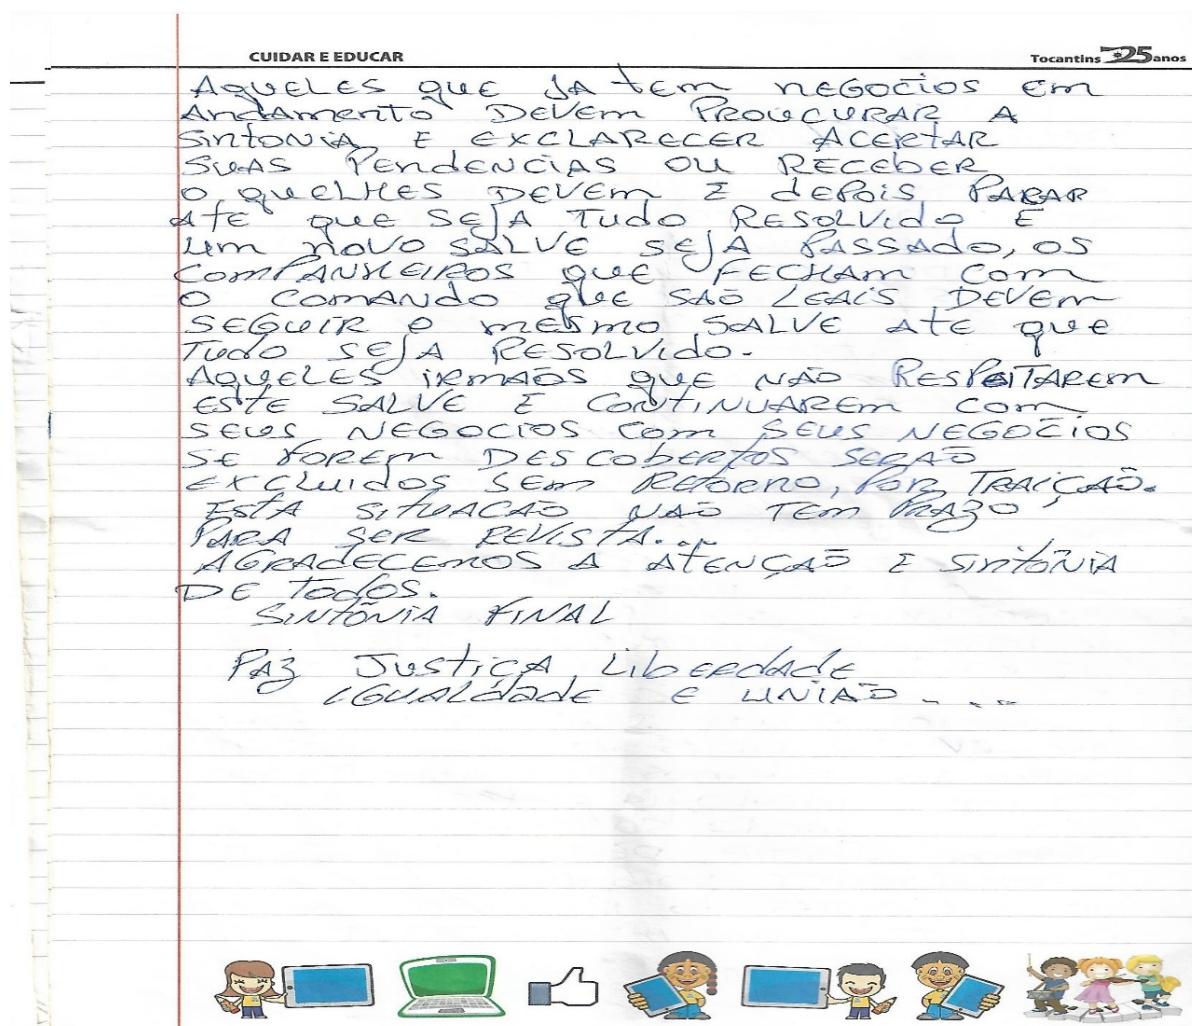 CUIDAR E EDUCAR
Tocantins 25 anos
AQUELES QUE JA tEm nEGOCiOS Em
AndAmEntO DEVEm PROUCURAR A
SintONiA E EXCLARECER ACERTAR
SUAS PEndENCiAS OU RECEBER
O quELHES DEVEm E dEPOiS PARAR
AtE quE SEJA TudO RESOLVidO E
um nOVO SALVE SEJA PASSADO, OS
COMPANHEiROS quE FECHAM Com
O COMANDO quE SÃO LEAiS DEVEm
SEGUiR O mESmO SALVE AtE quE
TudO SEJA RESOLVidO.
AQUELES iRmÃOS QUE NÃO RESPEiTAREm
ESTE SALVE E CONTiNUAREm Com
SEUS NEGOCiOS Com SEUS NEGOCiOS
SE FOREm DESCOBERTOS SERÃO
EXCLUidOS SEm RETORNO, POR TRAiÇÃO.
EStA SiTUACÃO NÃO TEm PRAzO
PARA SER REViSTA...
AGRADECEmOS A AtENÇÃO E SintÔNiA
DE TodOS.
SiNTÔNiA FiNAL
PAz JUStiÇA LibERdAdE
iGUALdAdE E UNiÃO ....